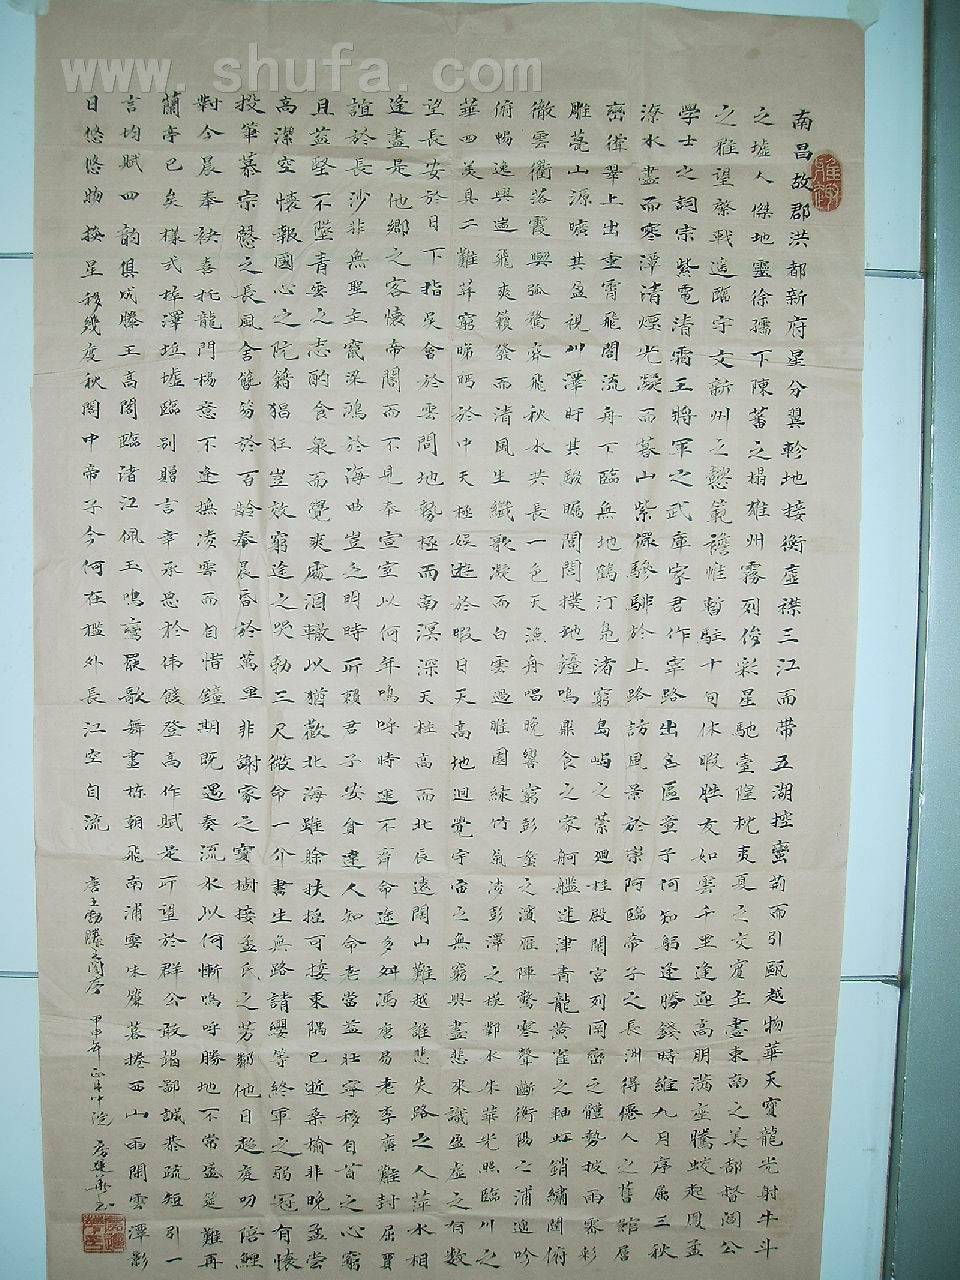 www.shufa.com
南昌故郡洪都新府星分翼軫地接衡廬襟三江而帶五湖控蠻荊而引甌越物華天寶龍光射牛斗
之墟人傑地靈徐孺下陳蕃之榻雄州霧列俊彩星馳臺隍枕夷夏之交賓主盡東南之美都督閻公
之雅望棨戟遙臨宇文新州之懿範襜帷暫駐十旬休暇勝友如雲千里逢迎高明滿座騰蛟起鳳孟
學士之詞宗紫電清霜王將軍之武庫家君作宰路出名區童子何知躬逢勝餞時維九月序屬三秋
潦水盡而寒潭清煙光凝而暮山紫儼驂騑於上路訪風景於崇阿臨帝子之長洲得僊人之舊館層
巒聳翠上出重霄飛閣流丹下臨無地鶴汀鳧渚窮島嶼之縈迴桂殿閒宮列岡巒之體勢披雨霽彩
雕甍山源曠其盈視川澤盱其駭矚閭閻撲地鐘鳴鼎食之家舸艦迷津青龍黃雀之軸虹銷繡闥俯
徹雲衢落霞與孤鶩齊飛秋水共長一色天漁舟唱晚響窮彭蠡之濱雁陣驚寒聲斷衡陽之浦遙吟
俯暢逸興遄飛爽籟發而清風生纖歌凝而白雲遏睢園綠竹氣凌彭澤之樽鄴水朱華光照臨川之
華四美具二難并窮睇眄於中天極娛遊於暇日天高地迴覺宇宙之無窮興盡悲來識盈虛之有數
望長安於日下指吳會於雲間地勢極而南溟深天柱高而北辰遠關山難越誰悲失路之人萍水相
逢盡是他鄉之客懷帝閽而不見奉宣室以何年嗚呼時運不齊命途多舛馮唐易老李廣難封屈賈
誼於長沙非無聖主竄梁鴻於海曲豈乏明時所賴君子安貧達人知命老當益壯寧移白首之心窮
且益堅不墜青雲之志酌貪泉而覺爽處涸轍以猶歡北海雖賒扶搖可接東隅已逝桑榆非晚孟嘗
高潔空懷報國心之阮籍猖狂豈效窮途之哭勃三尺微命一介書生無路請纓等終軍之弱冠有懷
投筆慕宗慤之長風舍簪笏於百齡奉晨昏於萬里非謝家之寶樹接孟氏之芳鄰他日趨庭叨陪鯉
對今晨奉袂喜托龍門楊意不逢撫凌雲而自惜鐘期既遇奏流水以何慚嗚呼勝地不常盛筵難再
蘭亭已矣樣式梓澤垃墟臨別贈言幸承恩於偉餞登高作賦是所望於群公敢竭鄙誠恭疏短引一
言均賦四韻俱成滕王高閣臨渚江佩玉鳴鸞罷歌舞畫棟朝飛南浦雲朱簾暮捲西山雨閒雲潭影
日悠悠物換星移幾度秋閣中帝子今何在檻外長江空自流
唐王勃滕王閣序 甲申年正月中浣